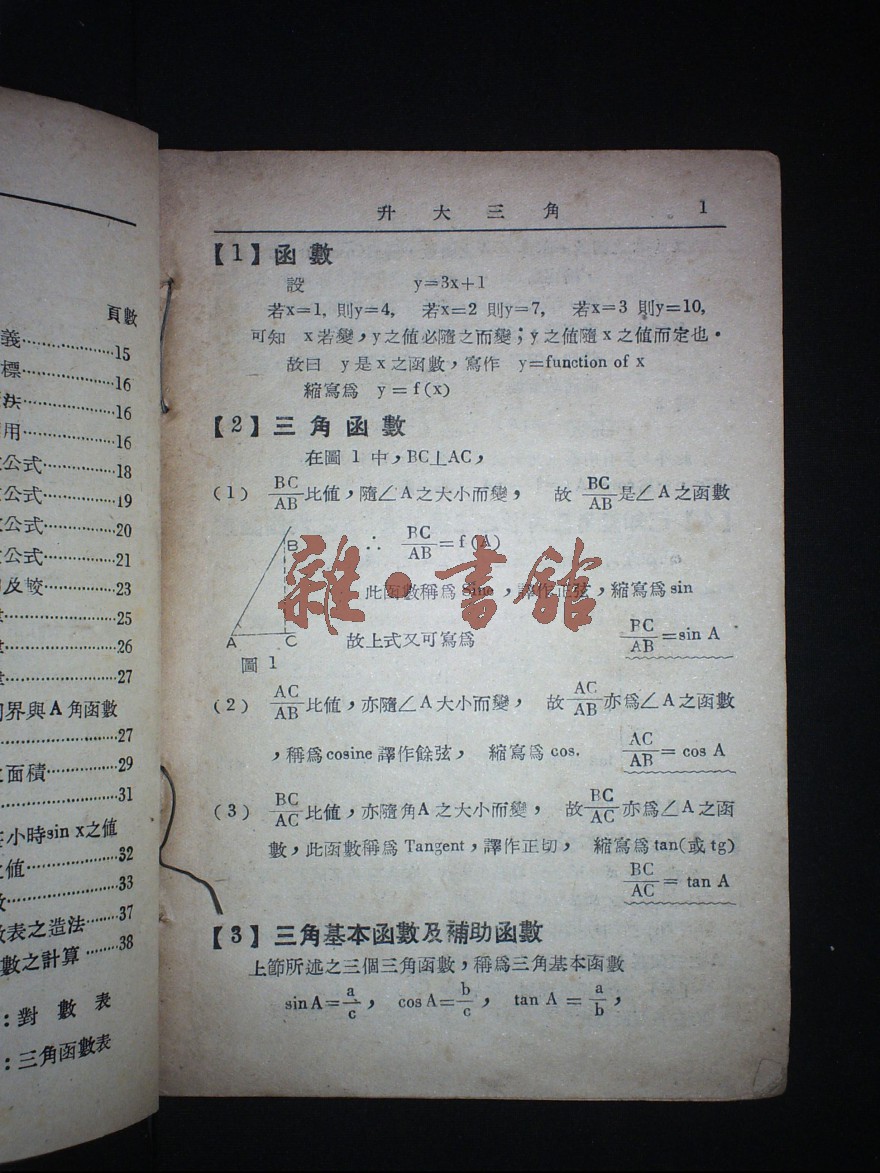 頁數
義……………15
標……………16
法……………16
用……………16
公式…………18
公式…………19
公式…………20
公式…………21
及較…………23
……………25
……………26
……………27
界與A角函數
……………27
之面積…………29
……………31
小時sin x之値
之値…………32
……………33
數表之造法……37
數之計算……38
：對數表
：三角函數表
升大三角 1
【1】函數
設 y=3x+1
若x=1, 則y=4, 若x=2 則y=7, 若x=3 則y=10,
可知 x若變，y之値必隨之而變；y之値隨x之値而定也。
故曰 y是x之函數，寫作 y=function of x
縮寫爲 y=f(x)
【2】三角函數
在圖1中，BC⊥AC，
(1) BC/AB比値，隨∠A之大小而變， 故 BC/AB是∠A之函數
∴ BC/AB=f(A)
此函數稱爲Sine，譯作正弦，縮寫爲sin
故上式又可寫爲 BC/AB=sin A
B
A C
圖1
(2) AC/AB比値，亦隨∠A大小而變， 故AC/AB亦爲∠A之函數
，稱爲cosine譯作餘弦， 縮寫爲cos. AC/AB=cos A
(3) BC/AC比値，亦隨角A之大小而變， 故BC/AC亦爲∠A之函
數，此函數稱爲Tangent，譯作正切， 縮寫爲tan(或tg)
BC/AC=tan A
【3】三角基本函數及補助函數
上節所述之三個三角函數，稱爲三角基本函數
sinA=a/c， cosA=b/c， tan A=a/b，
雜·書館